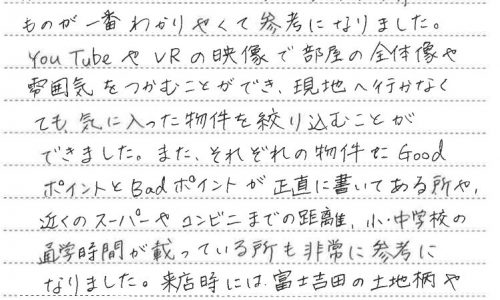 ものが一番わかりやくて参考になりました。
YouTubeやVRの映像で部屋の全体像や
雰囲気をつかむことができ、現地へ行かなく
ても、気に入った物件を絞り込むことが
できました。また、それぞれの物件にGood
ポイントとBadポイントが正直に書いてある所や、
近くのスーパーやコンビニまでの距離、小・中学校の
通学時間が載っている所も非常に参考に
なりました。来店時には富士吉田の土地柄や